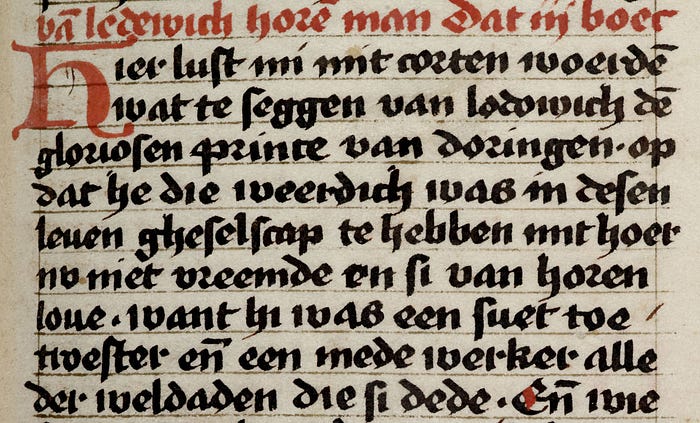 vā ledewich horē man Dat iij boec
Hier lust mi mit corten woerdē
wat te seggen van lodowich dē
gloriosen prince van doringen. op
dat he die weerdich was in desen
leuen gheselscap te hebben mit hoer
nv niet vreemde en si van horen
loue. want hi was een suet toe
twester en̄ een mede werker alle
der weldaden die si dede. En̄ wie